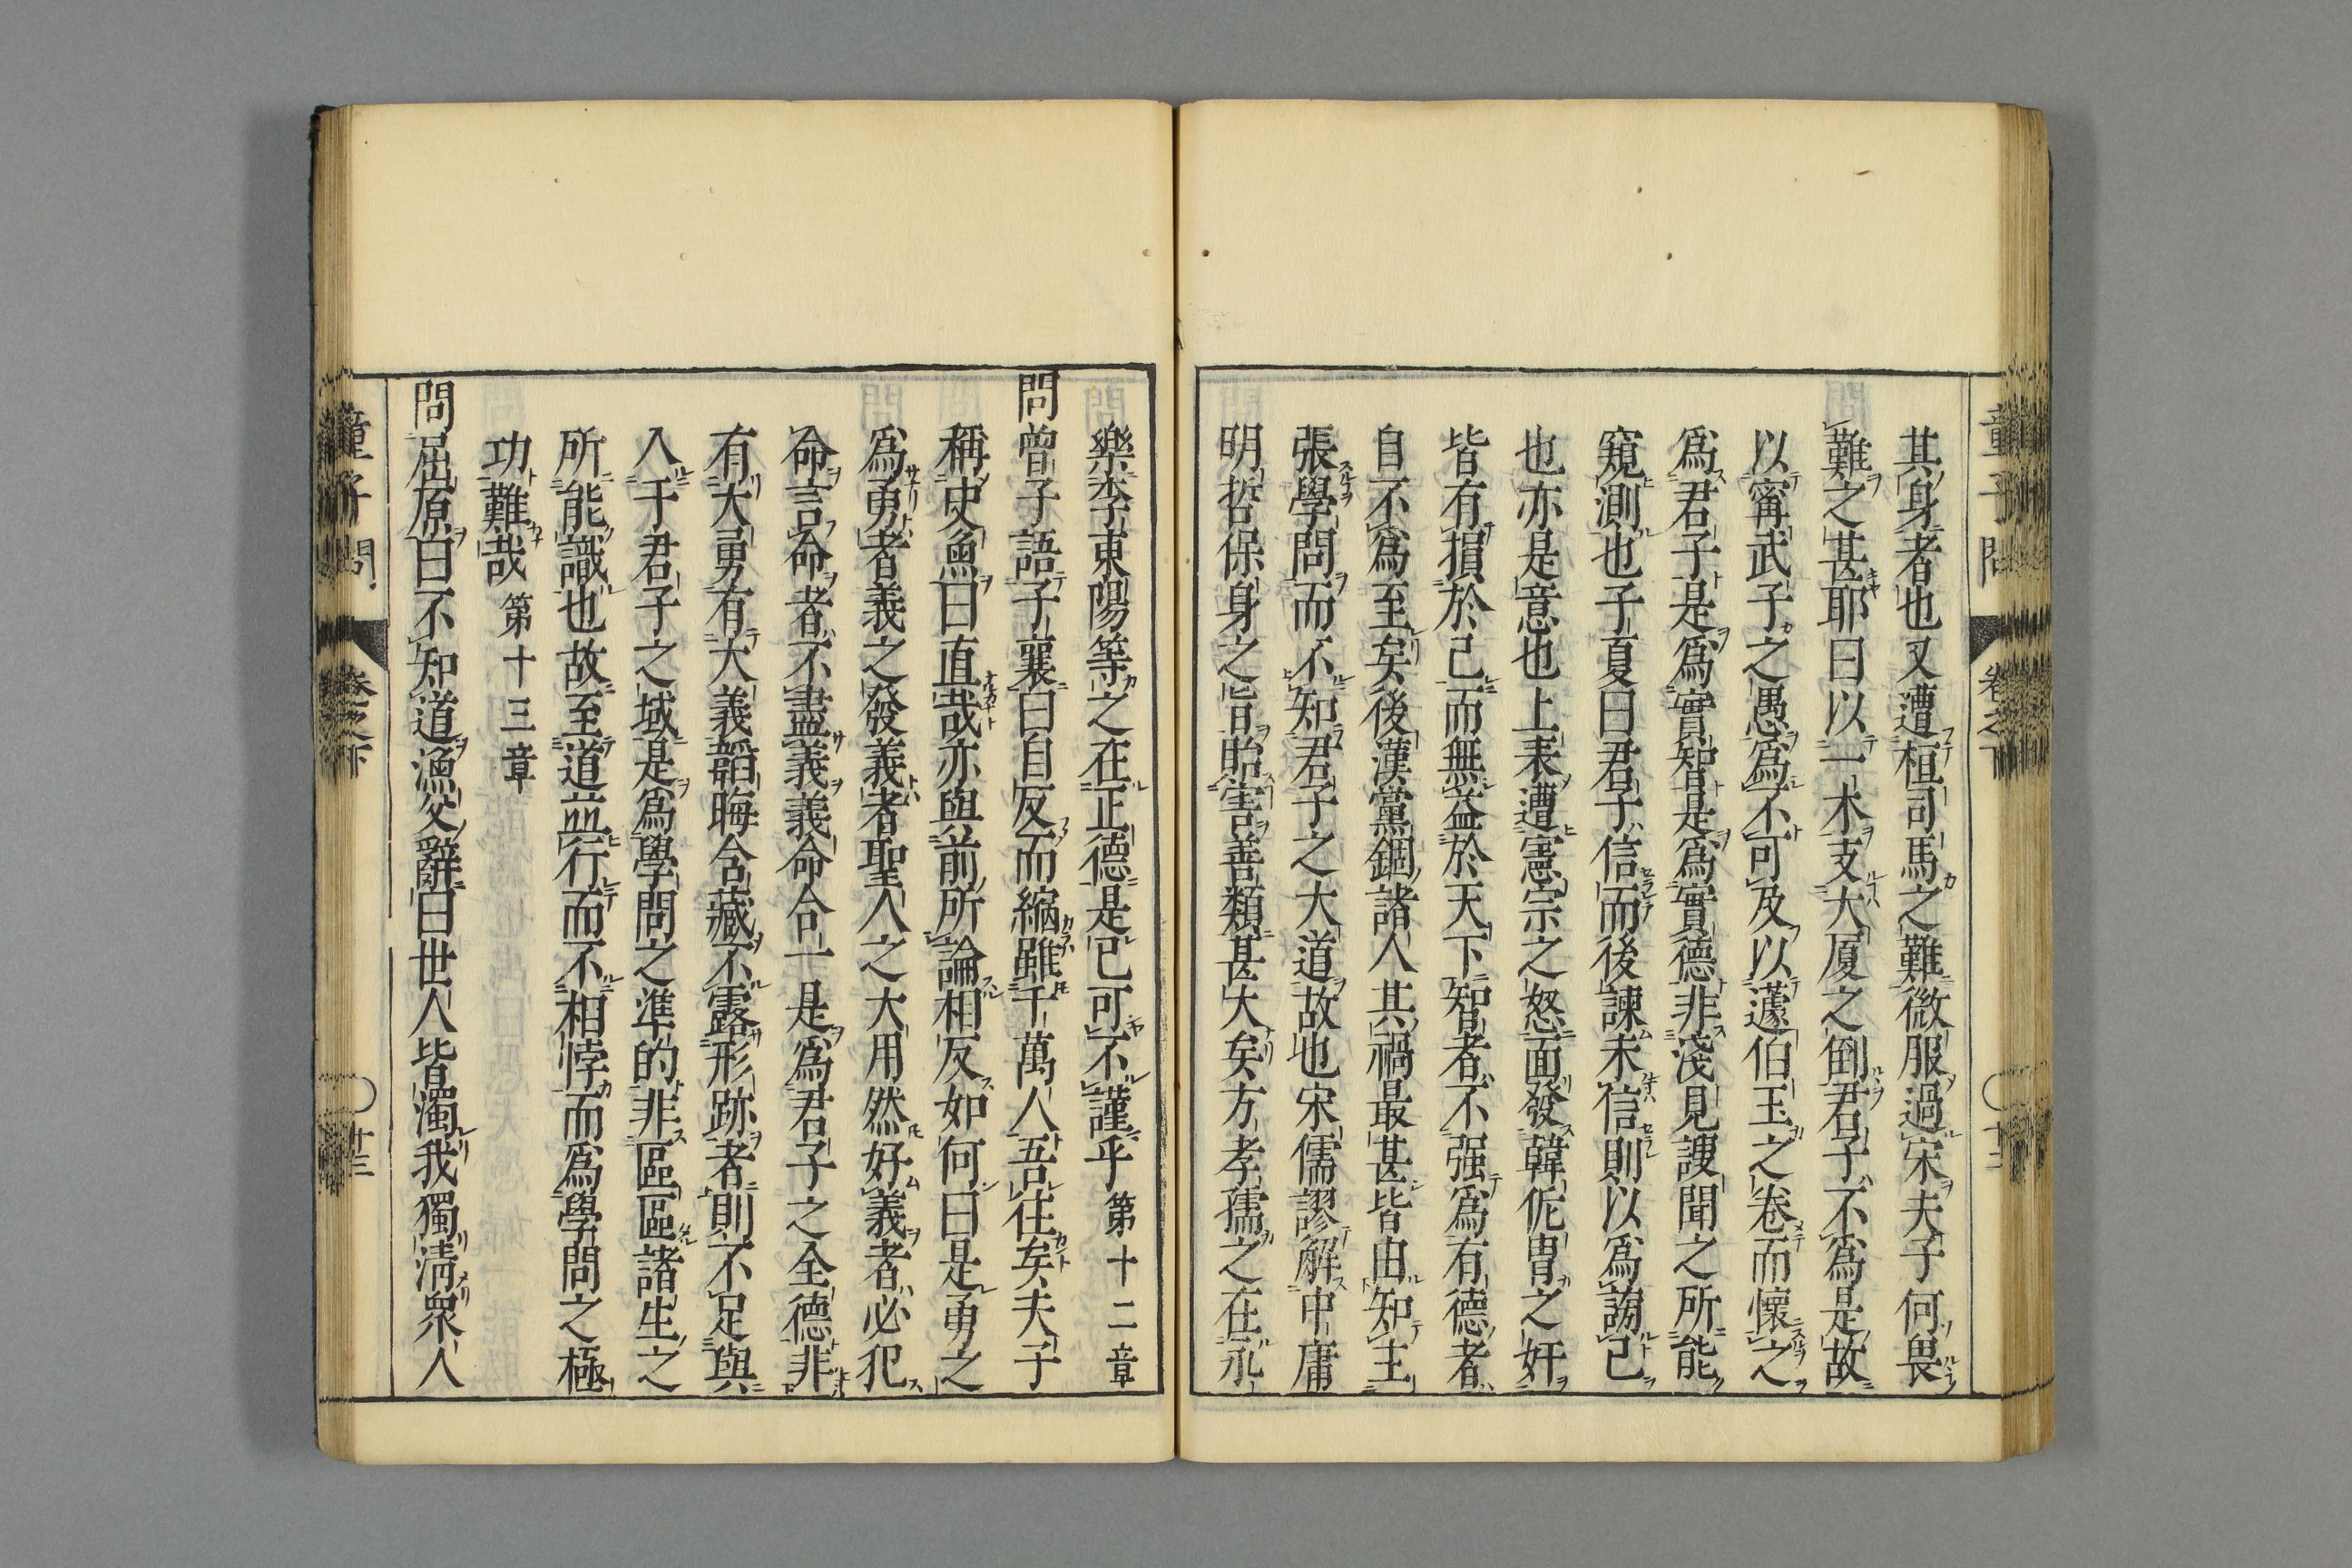 童子問 卷之下
其身者也又遭桓司馬之難微服過宋夫子何畏
難之甚耶曰以一木支大厦之倒君子不爲是故
以甯武子之愚爲不可及以蘧伯玉之卷而懷之
爲君子是爲實智是爲實德非淺見謏聞之所能
窺測也子夏曰君子信而後諫未信則以爲謗己
也亦是意也上表遭憲宗之怒面發韓侂冑之奸
皆有損於己而無益於天下智者不强爲有德者
自不爲至矣後漢黨錮諸人其禍最甚皆由知主
張學問而不知君子之大道故也宋儒謬解中庸
明哲保身之旨貽害善類甚大矣方孝孺之在永
樂李東陽等之在正德是已可不謹乎 第十二章
問曾子語子襄曰自反而縮雖千萬人吾往矣夫子
稱史魚曰直哉亦與前所論相反如何曰是勇之
爲勇者義之發義者聖人之大用然好義者必犯
命言命者不盡義義命合一是爲君子之全德非
有大勇有大義韜晦含藏不露形跡者則不足與
入于君子之域是爲學問之準的非區區諸生之
所能識也故至道並行而不相悖而爲學問之極
功難哉 第十三章
問屈原曰不知道漁父辭曰世人皆濁我獨淸衆人
童子問 卷之下 廿三